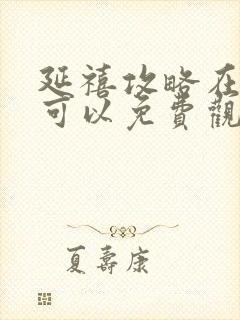 延禧攻略在
可以免費觀
夏壽康